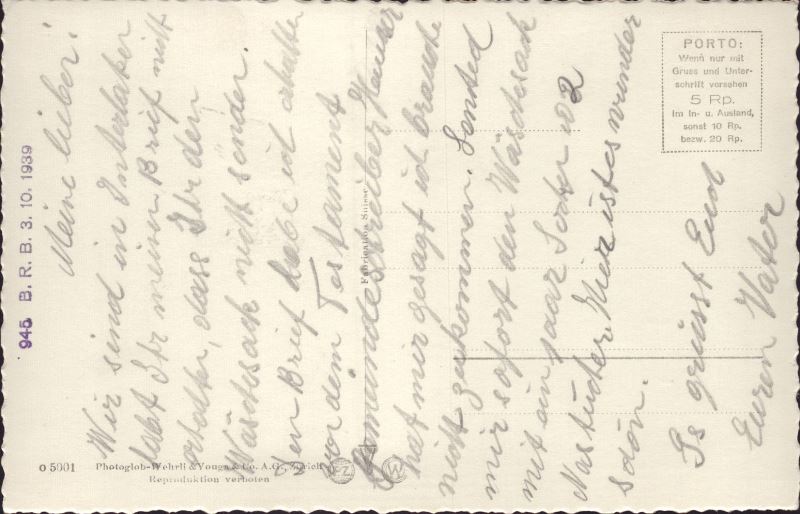 Meine lieber!
Wir sind in Interlaken
habt Ihr meinen Brief nicht
erhalten, dass Ihr den
Wäschesack nicht sendet.
Den Brief habe ich erhalten
vor dem Testament
Gemeindeschreiber
hat mir gesagt ich brauche
nicht zu kommen. Sendet
mir sofort den Wäschesack
mit ein paar
Hier ist es wunder
schön.
Es grüsst Euch
Euren Vater
PORTO:
Wenn nur mit
Gruss und Unter-
schrift versehen
5 Rp.
im In- u. Ausland,
sonst 10 Rp.
bezw. 20 Rp.
945 B. R. B. 3. 10. 1939
Fabrication Suisse
o 5001
Photoglob-Wehrli & Vouga & Co. A.G., Zürich
Reproduktion verboten
PZ
W